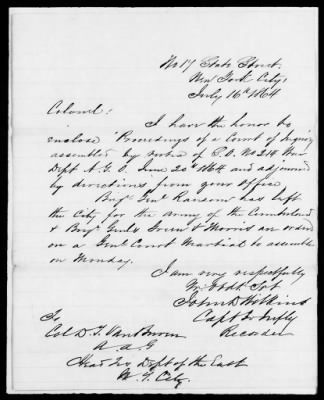 No 17 State Street.
New York City,
July 16th 1864
Colonel:
I have the honor to
enclose Proceedings of a Court of Inquiry
assembled by virtue of S.O. No 214 War
Dept A.G.O. June 20th 1864 and adjourned
by directions from your Office
Brig. Genl Ransom has left
the City for the Army of the Cumberland
& Brig Genls & Morris are ordered
on a Genl Court Martial to assemble
on Monday.
I am very respectfully
Yr Obdt Svt
John D Wilkins
Capt 3d Infty
Recorder
To
Col D. T. Van Buren
A. A. G
Head Qrs Dept of the East
N. Y. City.